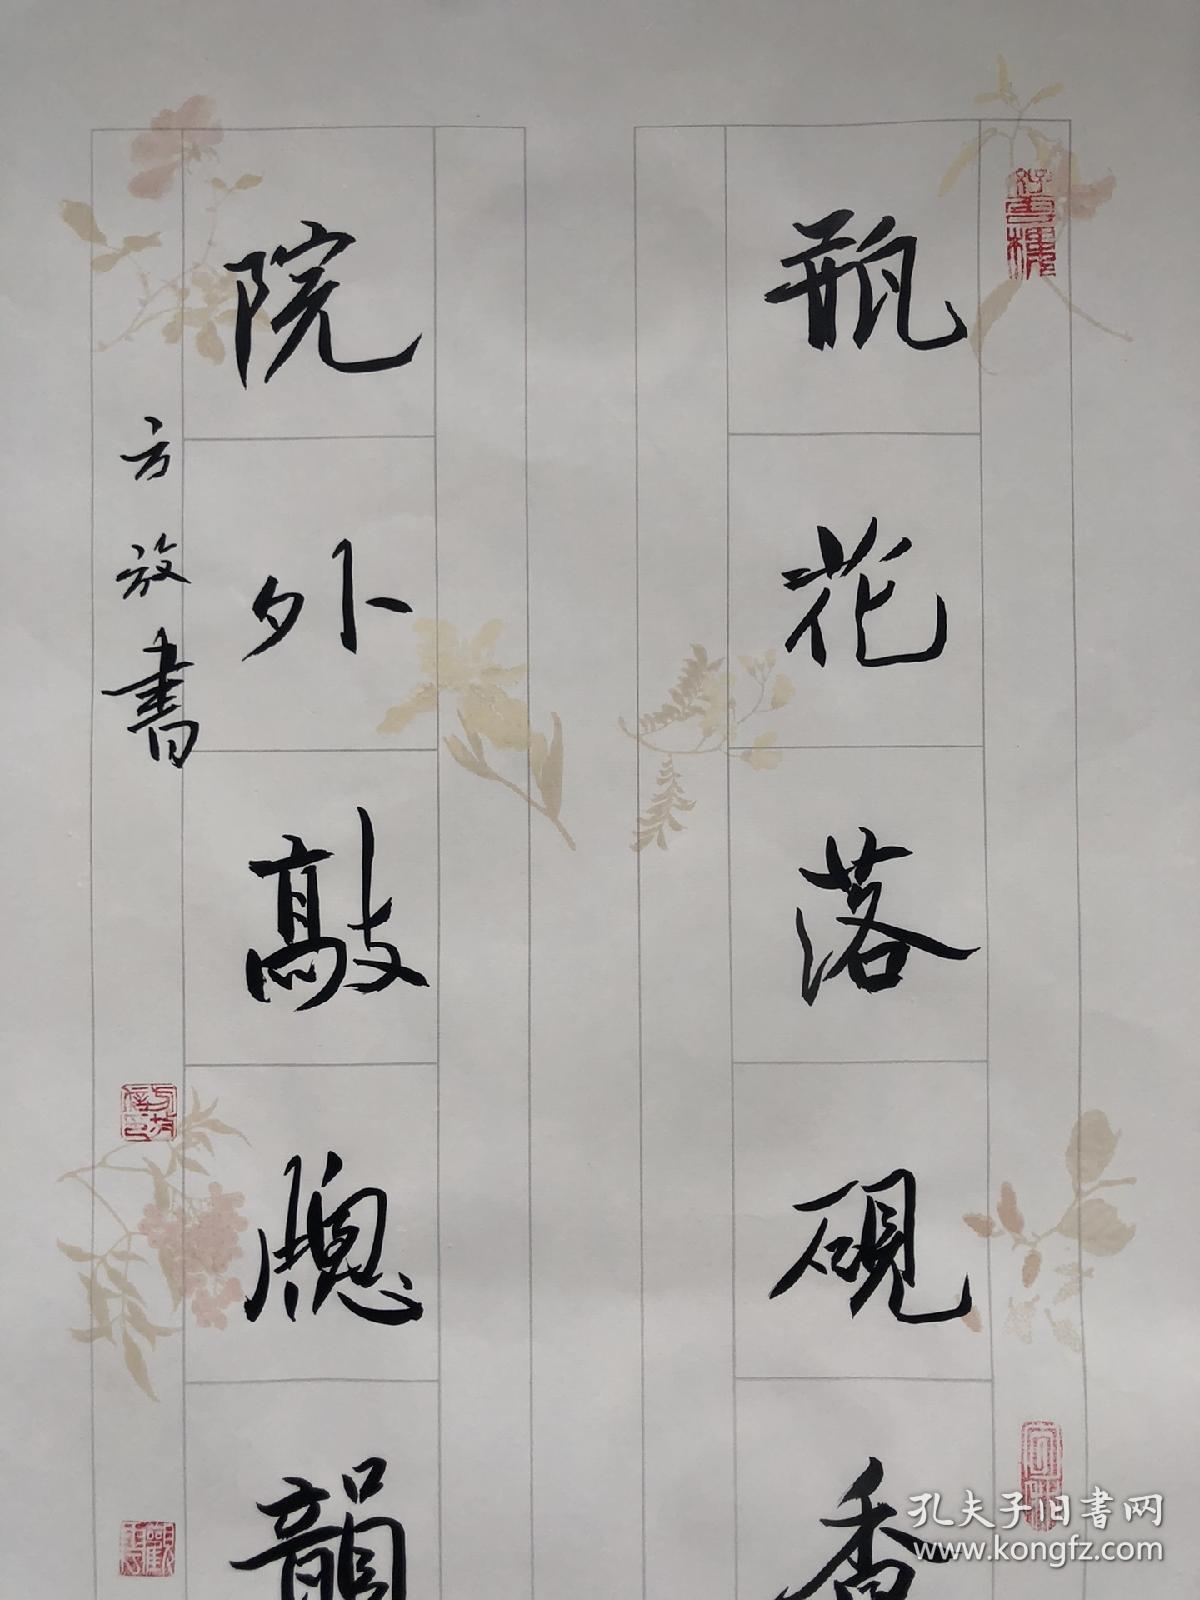 瓶花落硯香
院外敲牕韻
方放書
孔夫子旧书网
www.kongfz.com